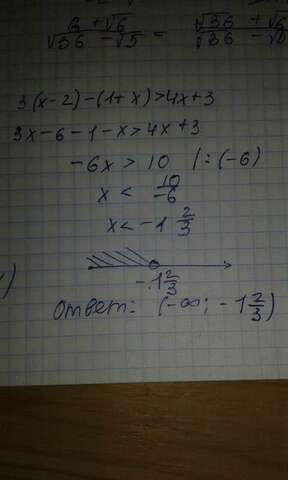 6 + √6 / √36 - √5 = √36 + √6 / √36 - √
3(x-2)-(1+x)>4x+3
3x-6-1-x>4x+3
-6x > 10 /:(-6)
x < 10/-6
x < -1 2/3
-1 2/3
Ответ: (-∞; -1 2/3)